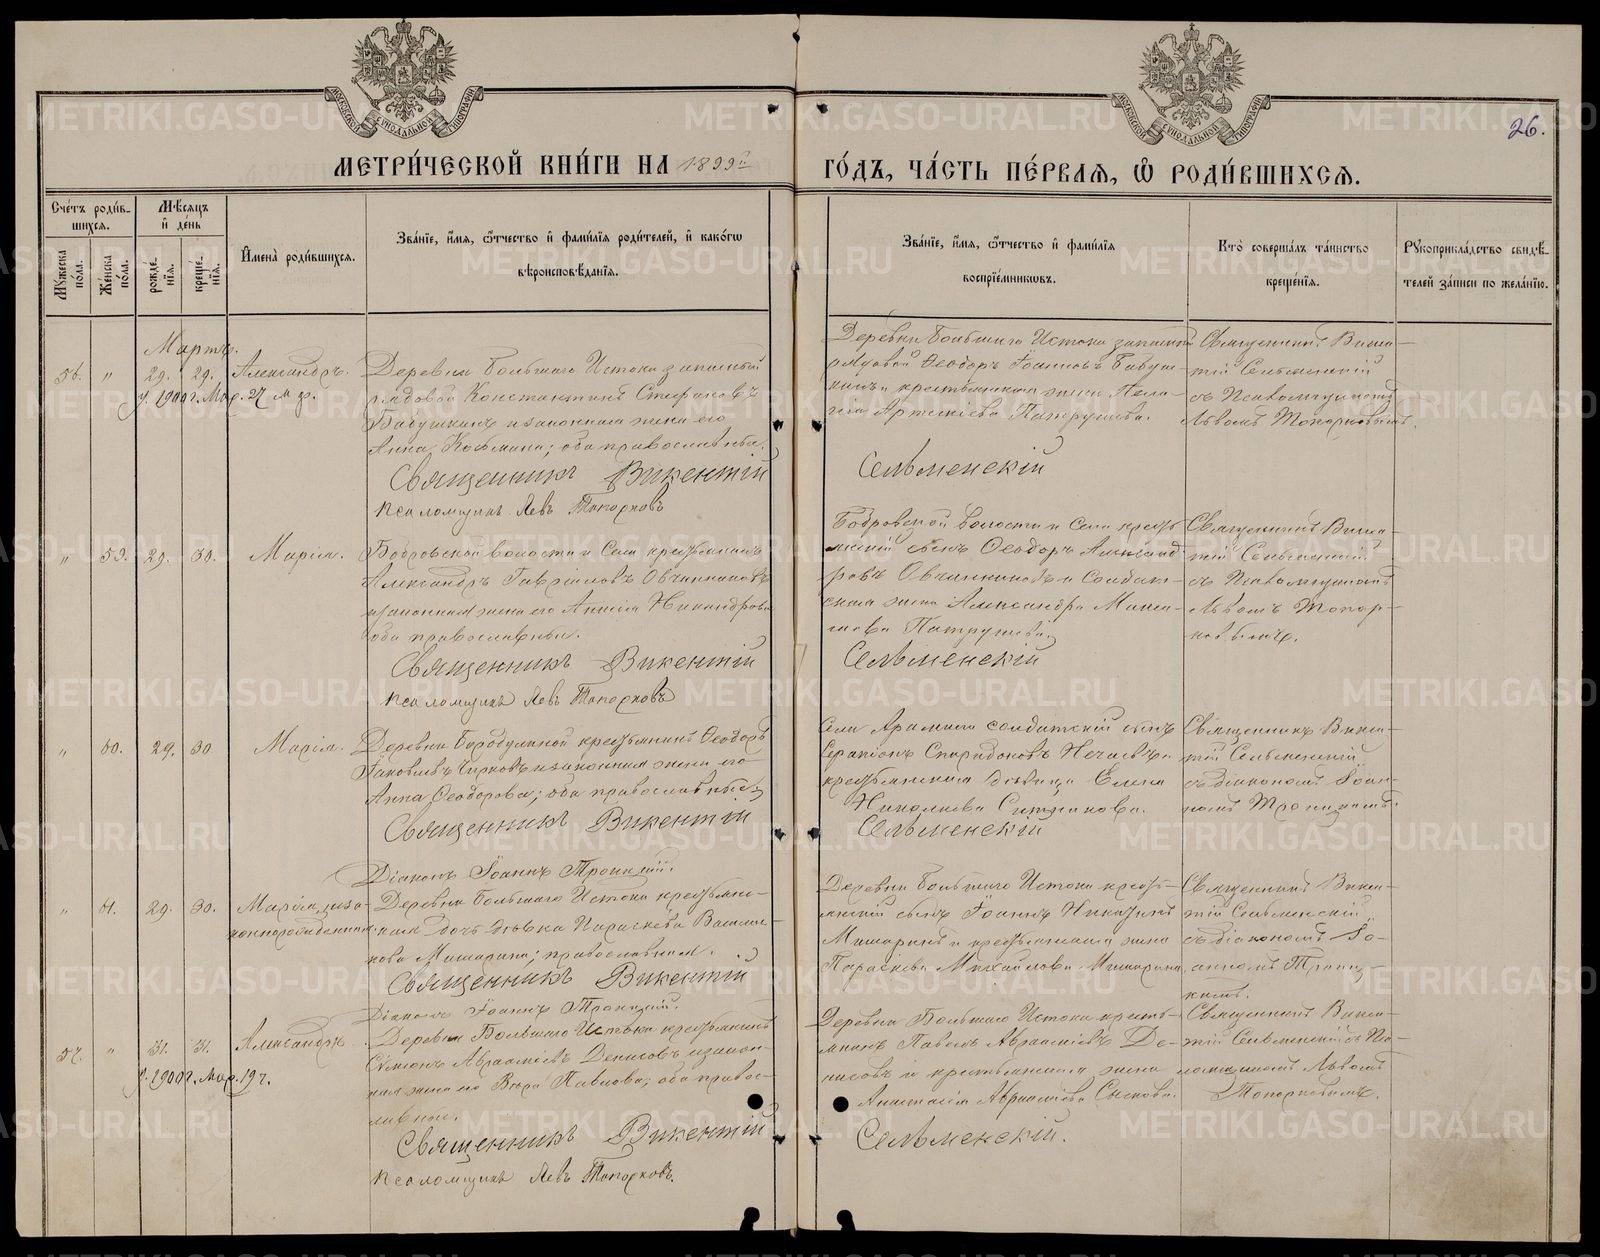 МЕТРИ́ЧЕСКОЙ КНИ́ГИ НА 1899й
ГО́ДЪ, ЧА́СТЬ ПЕ́РВАЯ, Ѡ҆ РОДИ́ВШИХСѦ.
26.
Сче́тъ роди́в-
шихся.
Мѣ́сяцъ
и҆ де́нь
Му́жеска по́ла.
Же́нска по́ла.
рожде́нїя.
креще́нїя.
И҆мена̀ роди́вшихся.
Зва́нїе, и҆́мя, ѻ҆́тчество и҆ фами́лїя роди́телей, и҆ како́гѡ
вѣроисповѣ́данїя.
Зва́нїе, и҆́мя, ѻ҆́тчество и҆ фами́лїя
воспрїе́мникѡвъ.
Кто̀ соверша́лъ та́инство
креще́нїя.
Рукоприкла́дство свидѣ́-
телей за́писи по жела́нїю.
Мартъ.
56. " 29. 29. Александръ.
у. 1900 г. Мар. 27
Деревни Большаго Истока запасный
рядовой Константинъ Стефановъ
Бабушкинъ и законная жена его
Анна; оба православны.
Священникъ Викентій
Псаломщикъ Левъ Топорковъ
Деревни Большаго Истока запасной
рядовой Ѳеодоръ Іоанновъ Бабуш-
кинъ и крестьянская жена Пела-
гія Артеміева Патрушева.
Сельменскій
Священникъ Викен-
тій Сельменскій
съ Псаломщикомъ
Львомъ Топорковымъ.
" 59. 29. 30. Марія.
Бобровской волости и Села крестьянинъ
Александръ Гавріиловъ Овчинниковъ
и законная жена его Анисія Никандрова
оба православны.
Священникъ Викентій
Псаломщикъ Левъ Топорковъ
Бобровской волости и Села кресть-
янскій сынъ Ѳеодоръ Александ-
ровъ Овчинниковъ и Солдат-
ская жена Александра
Патрушева
Сельменскій
Священникъ Викен-
тій Сельменскій
съ Псаломщикомъ
Львомъ Топор-
ковымъ.
" 60. 29. 30. Марія.
Деревни Бородулиной крестьянинъ Ѳеодоръ
Іаковлевъ Чирковъ и законная жена его
Анна Ѳеодорова; оба православные
Священникъ Викентій
Діаконъ Іоаннъ Троицкій.
Села Арамили солдатскій сынъ
Серапіонъ Спиридоновъ Нечаевъ и
крестьянская дѣвица Елена
Николаева Ситникова.
Сельменскій
Священникъ Викен-
тій Сельменскій
съ діакономъ Іоан-
номъ Троицкимъ.
" 61. 29. 30. Марія, неза-
коннорожденная.
Деревни Большаго Истока крестьян-
ская дочь дѣвка Параскева Василь-
кова Мишарина; православная.
Священникъ Викентій
Діаконъ Іоаннъ Троицкій.
Деревни Большаго Истока кресть-
янскій сынъ Іоаннъ Никитинъ
Мишаринъ и крестьянская жена
Параскева Михайлова Мишарина
Священникъ Викен-
тій Сельменскій
съ діакономъ Іо-
анномъ Троиц-
кимъ.
57. " 31. 31. Александръ.
у. 1900 г. Мар. 19 ч.
Деревни Большаго Истока крестьянинъ
Сѵмеонъ Авраамовъ Денисовъ и закон-
ная жена его Вѣра Павлова; оба право-
славные.
Священникъ Викентій
Псаломщикъ Левъ Топорковъ.
Деревни Большаго Истока кресть-
янинъ Павелъ Авраамовъ Де-
нисовъ и крестьянская жена
Анастасія Авраамова
Сельменскій.
Священникъ Викен-
тій Сельменскій съ Пса-
ломщикомъ Львомъ
Топорковымъ.
METRIKI.GASO-URAL.RU